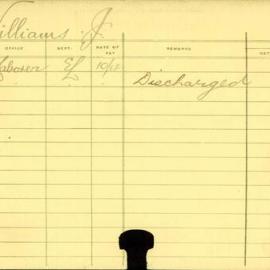 Williams J.
OFFICE DEPT. RATE OF PAY REMARKS
Laborer EL 10/12 Discharged